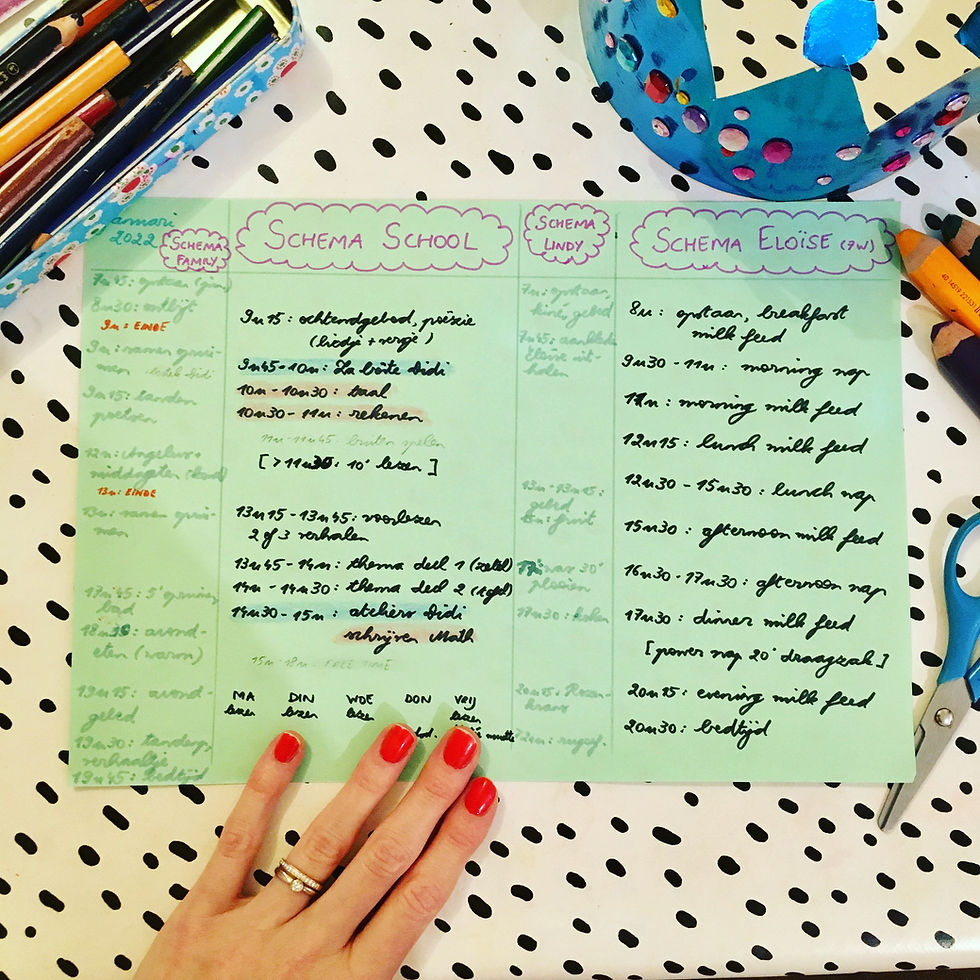 2022
SCHEMA
FAMILY
7u45: opstaan
8u30: ontbijt
9u: EINDE
9u: samen oprui-
men
9u15: tanden
poetsen
12u: Angelus +
middageten
13u: EINDE
13u: samen oprui-
men
17u45: 5'
bad
18u30: avond-
eten (warm)
19u15: avond-
gebed
19u30: tandenp,
verhaaltje
19u45: bedtijd
SCHEMA SCHOOL
9u15: ochtendgebed, poëzie
(liedje + versje)
9u45-10u: La boîte Didi
10u-10u30: taal
10u30-11u: rekenen
11u-11u45: buiten spelen
[> 11u30: 10' lezen]
13u15-13u45: voorlezen
2 of 3 verhalen
13u45-14u: thema deel 1 (zetel)
14u-14u30: thema deel 2 (tafel)
14u30-15u: ateliers Didi
schrijven Math
15u-18u: FREE TIME
MA DIN WOE DON VRIJ
lezen lezen lezen lezen
SCHEMA
LINDY
7u: opstaan,
gebed
7u45: aankleden
Eloïse uit-
halen
13u-13u15:
gebed
fruit
17u: was 30'
plooien
17u30: koken
20u15: Rozen-
krans
SCHEMA ELOÏSE (7W)
8u: opstaan, breakfast
milk feed
9u30-11u: morning nap
11u: morning milk feed
12u15: lunch milk feed
12u30-15u30: lunch nap
15u30: afternoon milk feed
16u30-17u30: afternoon nap
17u30: dinner milk feed
[power nap 20' draagzak]
20u15: evening milk feed
20u30: bedtijd